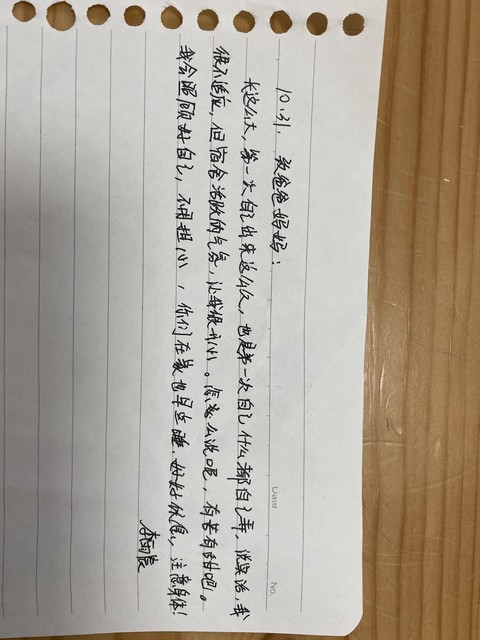 No.
Date
10.31. 致爸爸妈妈：
长这么大，第一次自己出来这么久，也是第一次自己什么都自己弄，说实话，我
很不适应，但宿舍活跃的气氛，让我很开心。怎么说呢，有苦有甜吧。
我会照顾好自己，不用担心，你们在家也早点睡，好好，注意身体！